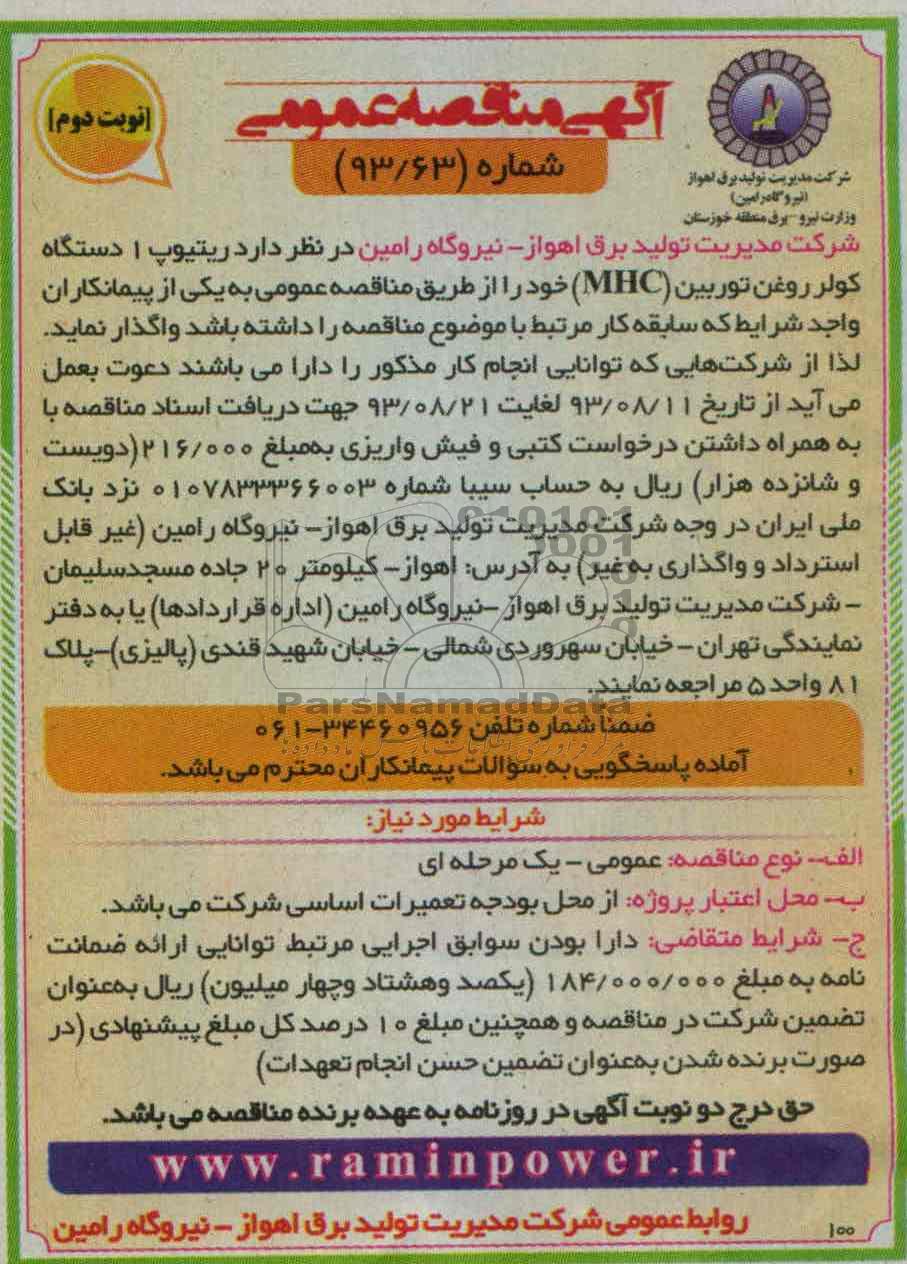 آگهی مناقصه عمومی
[نوبت دوم]
شماره (۹۳/۶۳)
شرکت مدیریت تولید برق اهواز
(نیروگاه رامین)
وزارت نیرو - برق منطقه خوزستان
شرکت مدیریت تولید برق اهواز- نیروگاه رامین در نظر دارد ریتیوپ ۱ دستگاه
کولر روغن توربین (MHC) خود را از طریق مناقصه عمومی به یکی از پیمانکاران
واجد شرایط که سابقه کار مرتبط با موضوع مناقصه را داشته باشد واگذار نماید.
لذا از شرکت‌هایی که توانایی انجام کار مذکور را دارا می باشند دعوت بعمل
می آید از تاریخ ۹۳/۰۸/۱۱ لغایت ۹۳/۰۸/۲۱ جهت دریافت اسناد مناقصه با
به همراه داشتن درخواست کتبی و فیش واریزی به‌مبلغ ۲۱۶/۰۰۰ (دویست
و شانزده هزار) ریال به حساب سیبا شماره ۰۱۰۷۸۳۳۳۶۶۰۰۳ نزد بانک
ملی ایران در وجه شرکت مدیریت تولید برق اهواز- نیروگاه رامین (غیر قابل
استرداد و واگذاری به غیر) به آدرس: اهواز- کیلومتر ۲۰ جاده مسجدسلیمان
- شرکت مدیریت تولید برق اهواز -نیروگاه رامین (اداره قراردادها) یا به دفتر
نمایندگی تهران - خیابان سهروردی شمالی - خیابان شهید قندی (پالیزی)-پلاک
۸۱ واحد ۵ مراجعه نمایند.
ParsNamadData
ضمنا شماره تلفن ۳۴۴۶۰۹۵۶-۰۶۱
آماده پاسخگویی به سؤالات پیمانکاران محترم می باشد.
شرایط مورد نیاز:
الف- نوع مناقصه: عمومی - یک مرحله ای
ب- محل اعتبار پروژه: از محل بودجه تعمیرات اساسی شرکت می باشد.
ج- شرایط متقاضی: دارا بودن سوابق اجرایی مرتبط توانایی ارائه ضمانت
نامه به مبلغ ۱۸۴/۰۰۰/۰۰۰ (یکصد وهشتاد وچهار میلیون) ریال به‌عنوان
تضمین شرکت در مناقصه و همچنین مبلغ ۱۰ درصد کل مبلغ پیشنهادی (در
صورت برنده شدن به‌عنوان تضمین حسن انجام تعهدات)
حق درج دو نوبت آگهی در روزنامه به عهده برنده مناقصه می باشد.
www.raminpower.ir
روابط عمومی شرکت مدیریت تولید برق اهواز - نیروگاه رامین
۱۰۰